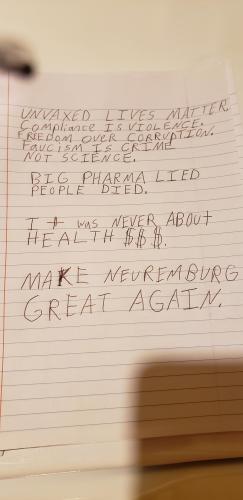 UNVAXED LIVES MATTER.
Compliance IS VIOLENCE.
FREEDOM OVER CORRUPTION.
FAUCISM IS CRIME
NOT SCIENCE.
BIG PHARMA LIED
PEOPLE DIED.
I t was NEVER ABOUt
HEALTH $$$.
MAKE NEUREMBURG
GREAT AGAIN.